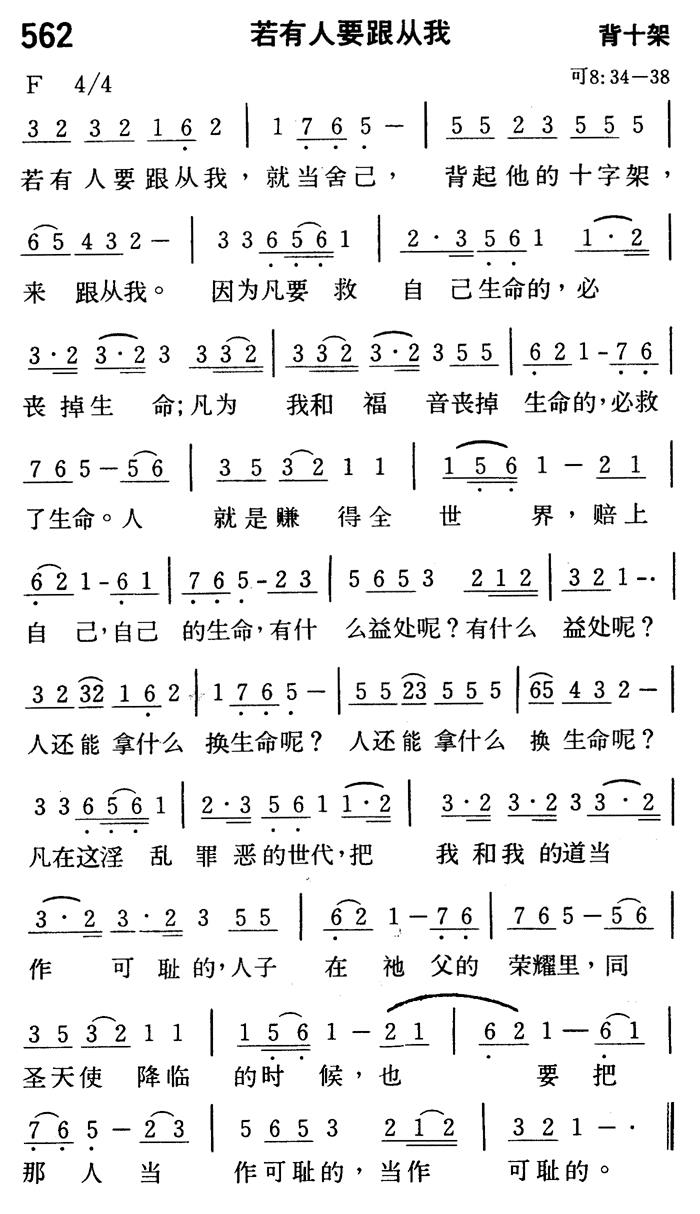 562 若有人要跟从我 背十架
F 4/4 可8:34—38
3 2 3 2 1 6 2 | 1 7 6 5 — | 5 5 2 3 5 5 5 |
若有人要跟从我，就当舍己， 背起他的十字架，
6 5 4 3 2 — | 3 3 6 5 6 1 | 2 · 3 5 6 1 1 · 2 |
来 跟从我。 因为凡要 救 自 己生命的，必
3 · 2 3 · 2 3 3 3 2 | 3 3 2 3 · 2 3 5 5 | 6 2 1 - 7 6 |
丧掉生 命；凡为 我和 福 音丧掉 生命的，必救
7 6 5 — 5 6 | 3 5 3 2 1 1 | 1 5 6 1 — 2 1 |
了生命。人 就是赚 得全 世 界，赔上
6 2 1 - 6 1 | 7 6 5 - 2 3 | 5 6 5 3 2 1 2 | 3 2 1 - · |
自 己，自己 的生命，有什 么益处呢？有什么 益处呢？
3 2 32 1 6 2 | 1 7 6 5 — | 5 5 23 5 5 5 | 65 4 3 2 — |
人还能 拿什么 换生命呢？ 人还能 拿什么 换 生命呢？
3 3 6 5 6 1 | 2 · 3 5 6 1 1 · 2 | 3 · 2 3 · 2 3 3 · 2 |
凡在这淫 乱 罪 恶的世代，把 我 和我 的道当
3 · 2 3 · 2 3 5 5 | 6 2 1 — 7 6 | 7 6 5 — 5 6 |
作 可 耻 的，人子 在 祂 父的 荣耀里，同
3 5 3 2 1 1 | 1 5 6 1 — 2 1 | 6 2 1 — 6 1 |
圣天使 降临 的时 候，也 要 把
7 6 5 — 2 3 | 5 6 5 3 2 1 2 | 3 2 1 — · ‖
那 人 当 作可耻的，当作 可耻的。